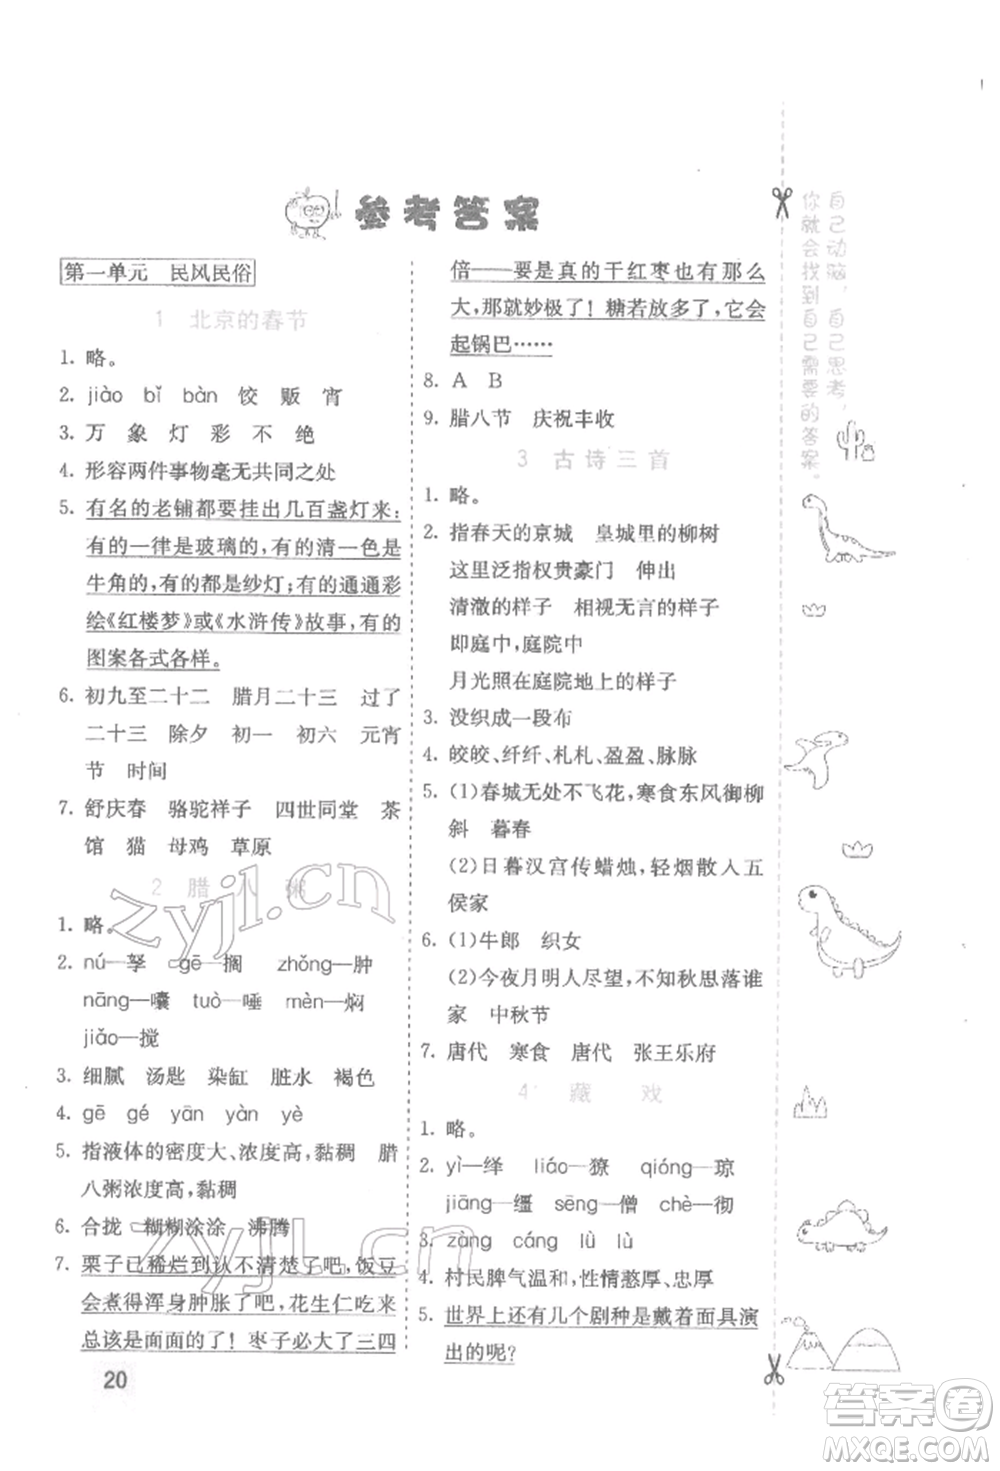 参考答案
第一单元 民风民俗
1 北京的春节
1. 略。
2. jiào bǐ bàn 饺 贩 宵
3. 万 象 灯 彩 不 绝
4. 形容两件事物毫无共同之处
5. 有名的老铺都要挂出几百盏灯来：
有的一律是玻璃的，有的清一色是
牛角的，有的都是纱灯；有的通通彩
绘《红楼梦》或《水浒传》故事，有的
图案各式各样。
6. 初九至二十二 腊月二十三 过了
二十三 除夕 初一 初六 元宵
节 时间
7. 舒庆春 骆驼祥子 四世同堂 茶
馆 猫 母鸡 草原
2 腊八粥
1. 略。
2. nú—孥 gē—搁 zhǒng—肿
nāng—囊 tuò—唾 mèn—焖
jiǎo—搅
3. 细腻 汤匙 染缸 脏水 褐色
4. gē gé yān yàn yè
5. 指液体的密度大、浓度高，黏稠 腊
八粥浓度高，黏稠
6. 合拢 糊糊涂涂 沸腾
7. 栗子已稀烂到认不清楚了吧，饭豆
会煮得浑身肿胀了吧，花生仁吃来
总该是面面的了！枣子必大了三四
倍——要是真的干红枣也有那么
大，那就妙极了！糖若放多了，它会
起锅巴……
8. A B
9. 腊八节 庆祝丰收
3 古诗三首
1. 略。
2. 指春天的京城 皇城里的柳树
这里泛指权贵豪门 伸出
清澈的样子 相视无言的样子
即庭中，庭院中
月光照在庭院地上的样子
3. 没织成一段布
4. 皎皎、纤纤、札札、盈盈、脉脉
5. (1)春城无处不飞花，寒食东风御柳
斜 暮春
(2)日暮汉宫传蜡烛，轻烟散入五
侯家
6. (1)牛郎 织女
(2)今夜月明人尽望，不知秋思落谁
家 中秋节
7. 唐代 寒食 唐代 张王乐府
4 藏戏
1. 略。
2. yì—绎 liáo—獠 qióng—琼
jiāng—缰 sēng—僧 chè—彻
3. zàng cáng lù lù
4. 村民脾气温和，性情憨厚、忠厚
5. 世界上还有几个剧种是戴着面具演
出的呢？
自己动脑，自己思考，
你就会找到自己需要的答案。
20
zyjl.cn
zyjl.cn
答案卷
MXQE.COM